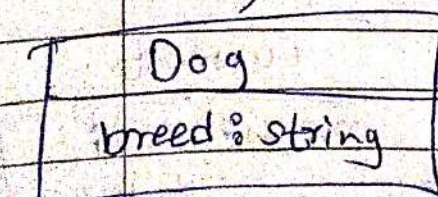 Dog
breed: string